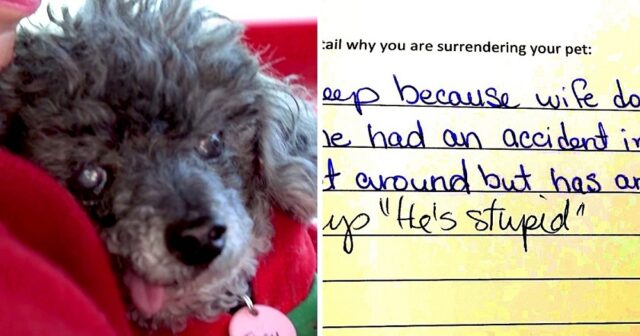 tail why you are surrendering your pet:
eep because wife do
he had an accident in
t around but has a
up "He's stupid"